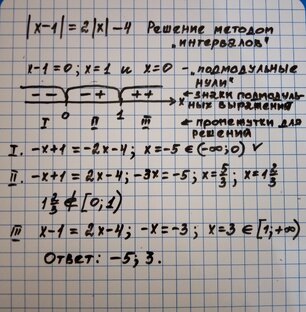 |x-1|=2|x|-4 Решение методом
„интервалов"
x-1=0; x=1 и x=0 - „подмодульные
нули"
-- -+ ++ x ← знаки подмодуль-
0 1 ных выражения
I II III ← промежутки для
решений
I. -x+1=-2x-4; x=-5 ∈ (-∞;0) ✓
II. -x+1=2x-4; -3x=-5; x=5/3; x=1 2/3
1 2/3 ∉ [0;1)
III x-1=2x-4; -x=-3; x=3 ∈ [1;+∞)
Ответ: -5; 3.